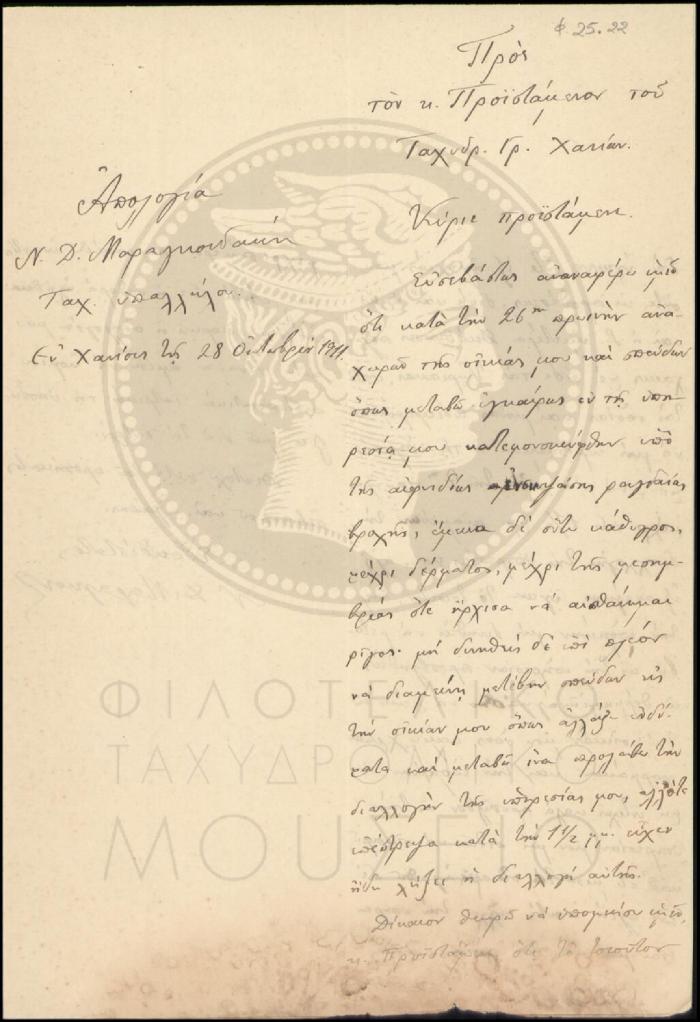 φ. 25.22
Πρὸς
τὸν κ. Προϊστάμενον τοῦ
Ταχυδρ. Γρ. Χανίων.
Ἀπολογία
Ν. Δ. Μαραγκουδάκη
Ταχ. ὑπαλλήλου.
Ἐν Χανίοις τῇ 28 Ὀκτωβρίου 1911
Κύριε προϊστάμενε.
Εὐσεβάστως ἀναφέρω ὑμῖν
ὅτι κατὰ τὴν 26ην πρωινὴν ἀνα-
χωρῶ τῆς οἰκίας μου καὶ σπεύδων
ὅπως μεταβῶ ἐγκαίρως ἐν τῇ ὑπη-
ρεσίᾳ μου κατεμουσκεύθην ὑπὸ
τῆς αἰφνιδίας ραγδαίας
βροχῆς, ἔμεινα δὲ οὕτω κάθυγρος,
μέχρι δέρματος, μέχρι τῆς μεσημ-
βρίας ὅτε ἤρχισα νὰ αἰσθάνωμαι
ρίγος· μὴ δυνηθεὶς δὲ ἐπὶ πλέον
νὰ διαμείνῃ μετέβην σπεύδων εἰς
τὴν οἰκίαν μου ὅπως ἀλλάξω ἐνδύ-
ματα καὶ μεταβῶ ἵνα προλάβω τὴν
διαλλογὴν τῆς ὑπηρεσίας μου, ἀλλ' ὅτε
ἐπέστρεψα κατὰ τὴν 1 1/2 μμ. εἶχεν
ἤδη λήξει ἡ διαλλογὴ αὐτῆς.
Δίκαιον θεωρῶ νὰ ὑπομνήσω ὑμῖν,
κ. Προϊστάμενε ὅτι τὸ τοιοῦτον
ΦΙΛΟΤΕΛΙΚΟ
ΤΑΧΥΔΡΟΜΙΚΟ
ΜΟΥΣΕΙΟ